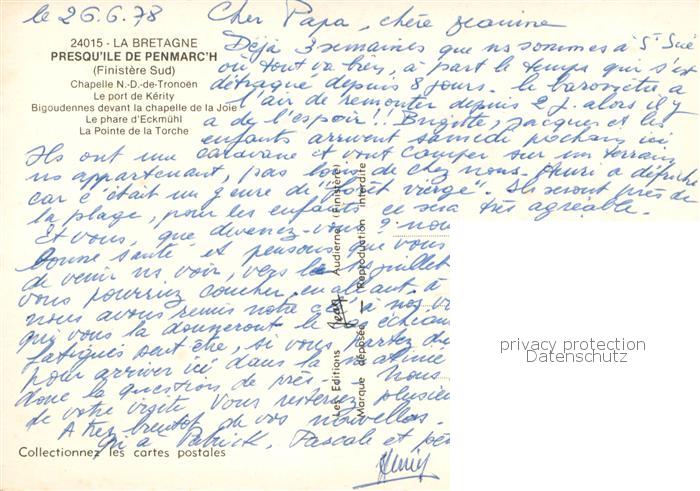 le 26.6.78 Cher Papa, chère Jeanine
24015 - LA BRETAGNE
PRESQU'ILE DE PENMARC'H
(Finistère Sud)
Chapelle N.-D.-de-Tronoën
Le port de Kérity
Bigoudennes devant la chapelle de la Joie
Le phare d'Eckmühl
La Pointe de la Torche
Déjà 3 semaines que ns sommes à St
où tout va bien, à part le temps qui s'est
détraqué depuis 8 jours. le baromètre a
l'air de remonter depuis 2 j. alors il y
a de l'espoir!! Brigitte, Jacques et les
enfants arrivent samedi prochain ici.
Ils ont une caravane et vont camper sur un terrain
ns appartenant, pas loin de chez nous. Henri a défriché
car c'était un genre de "forêt vierge". Ils seront près de
la plage, pour les enfants ce sera très agréable.
Et vous, que devenez-vous? nous
bonne santé et pensons que vous
de venir ns voir, vers le juillet
vous pourriez coucher, en allant, à
nous avons remis notre à nos
qui vous la donneront le
fatigués peut être, si vous partez du
pour arriver ici dans la matinée
donc la question de près. Nous
de votre visite. Vous resterez plusieurs
A très bientôt de vos nouvelles.
à Patrick, Pascale et
Henri
Les Editions Jean Audierne (Finistère)
Marque déposée — Reproduction interdite
Collectionnez les cartes postales
privacy protection
Datenschutz